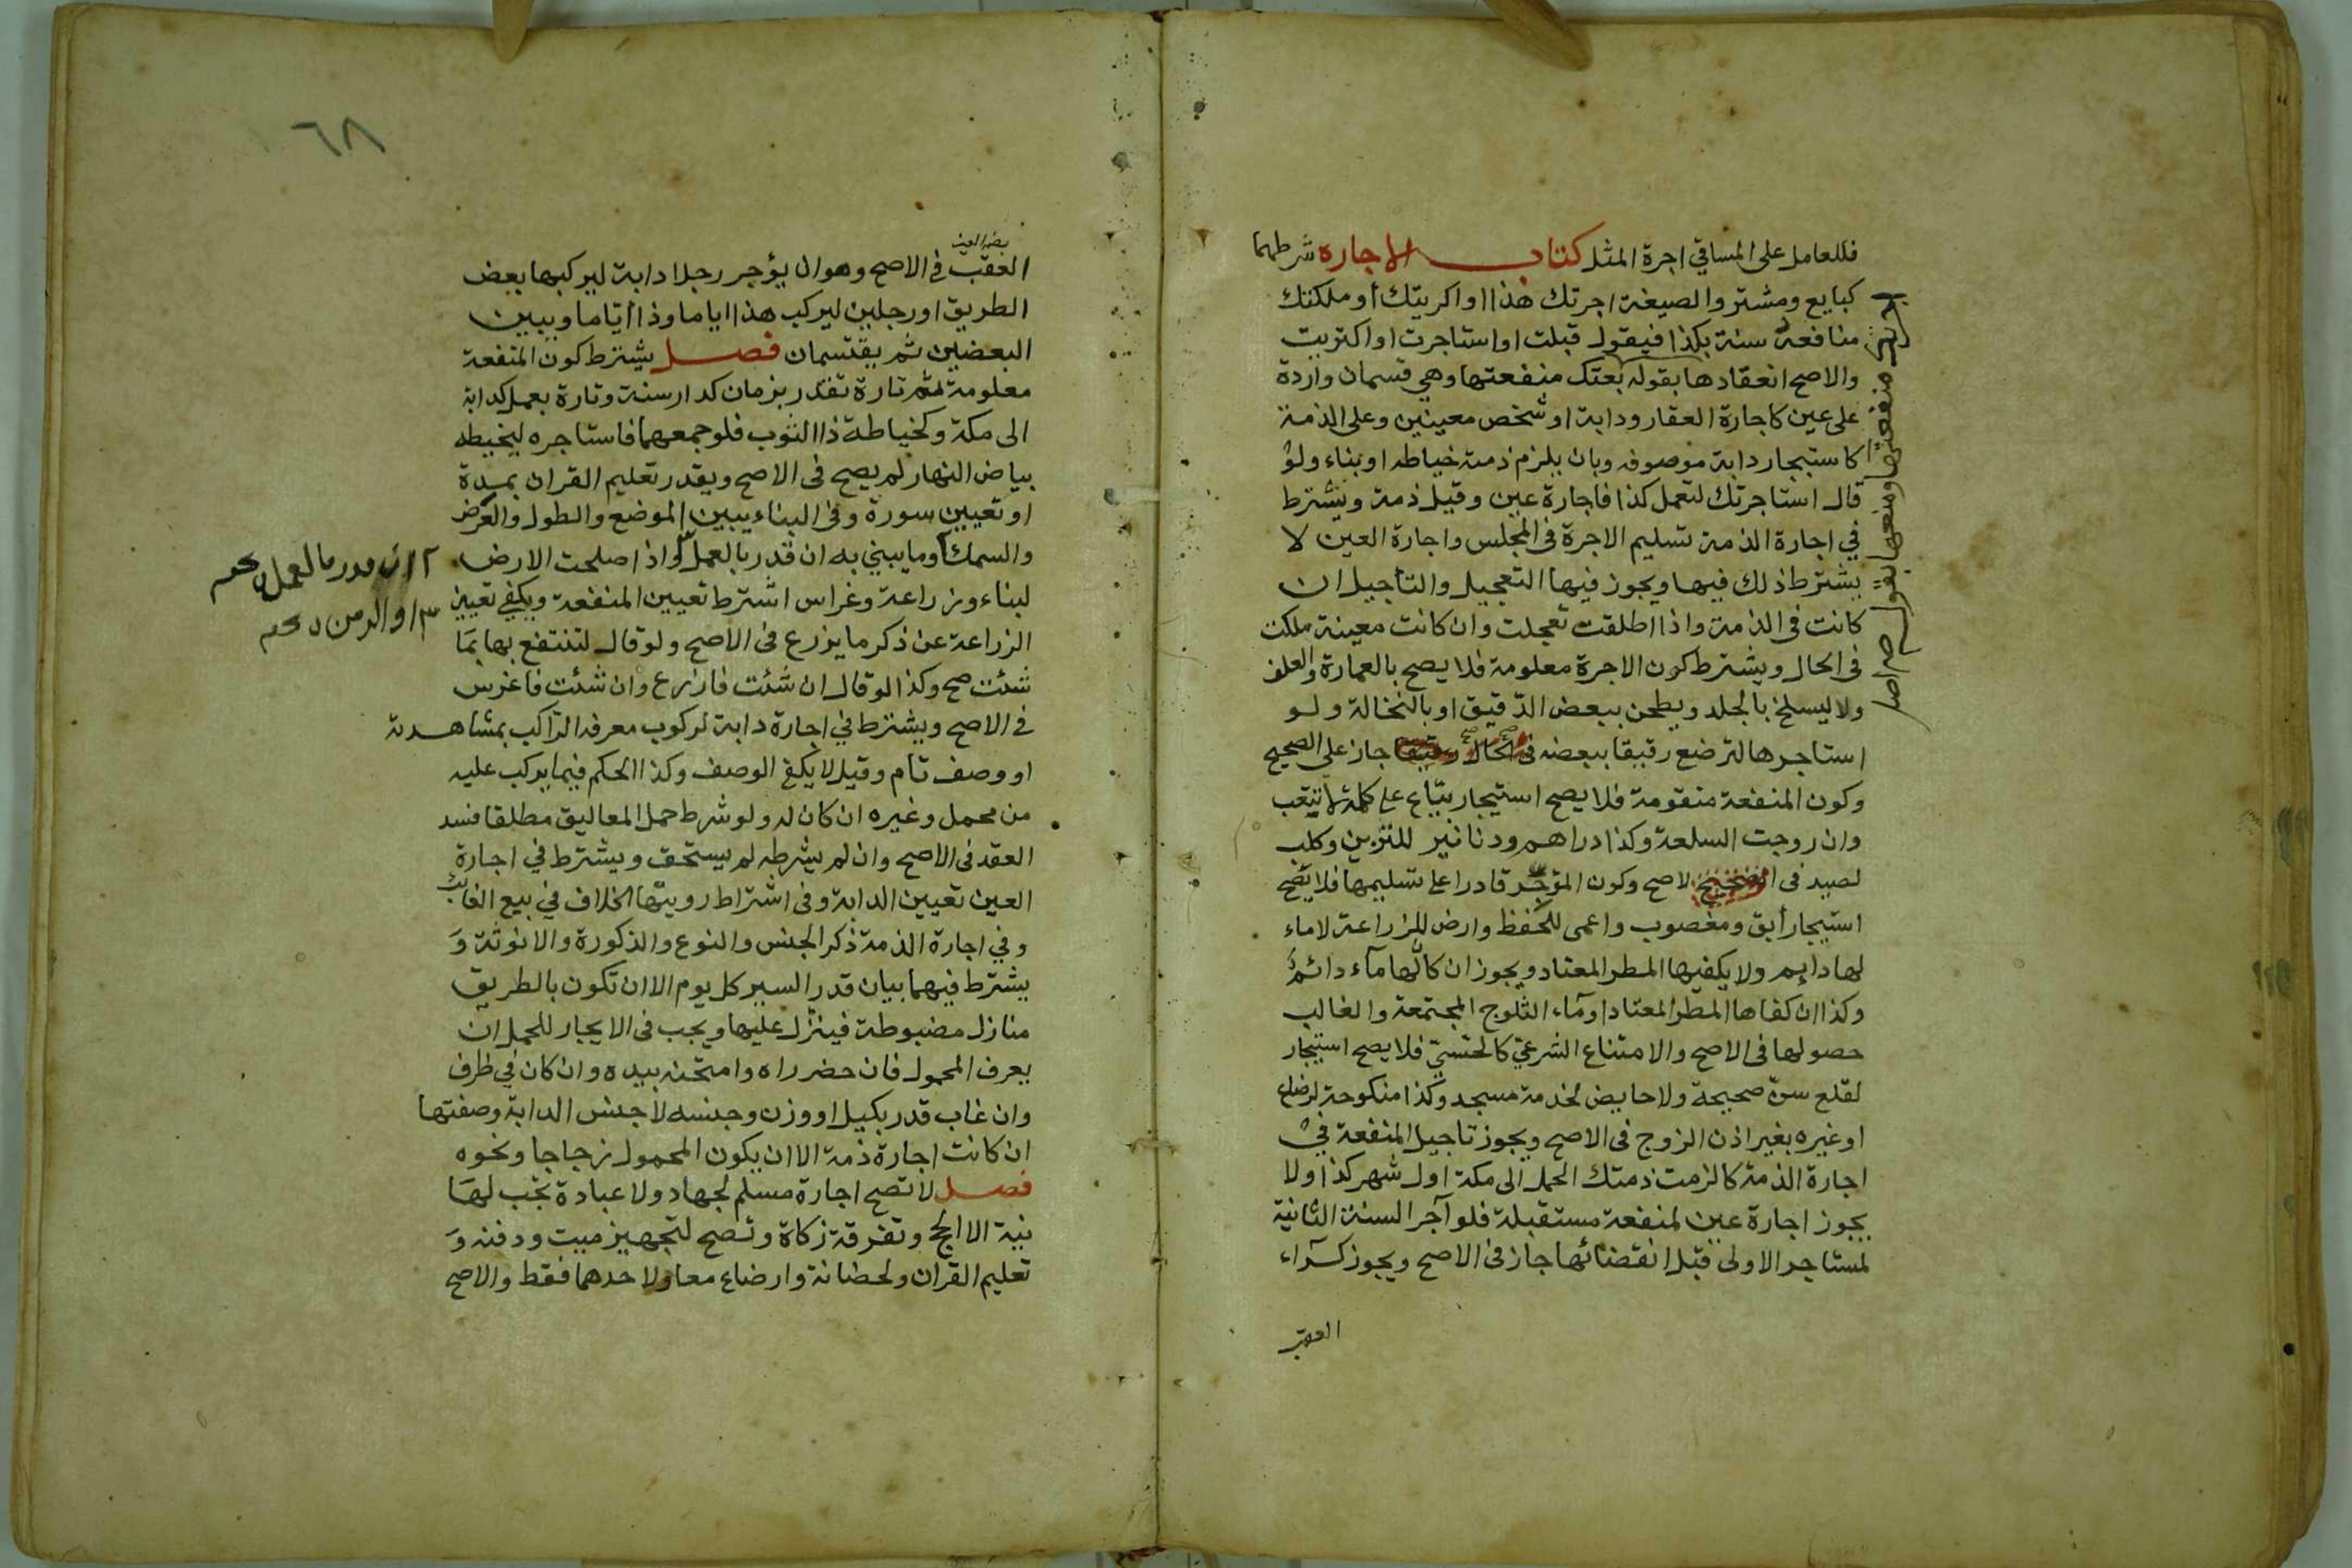 فللعامل على المساقي اجرة المثل كتاب الاجاره شرطهما
كبايع ومشتر والصيغة اجرتك هذا او اكريتك أو ملكتك
منافعه سنة بكذا فيقول قبلت او استاجرت او اكتريت
والاصح انعقادها بقوله بعتك منفعتها وهي قسمان واردة
على عين كاجارة العقار ودابة او شخص معينين وعلى الذمة
كاستيجار دابة موصوفه وبان يلزم ذمته خياطه او بناء ولو
قال استاجرتك لتعمل كذا فاجارة عين وقيل ذمة ويشترط
في اجارة الذمة تسليم الاجرة فى المجلس واجارة العين لا
يشترط ذلك فيها ويجوز فيها التعجيل والتأجيل ان
كانت فى الذمة واذا اطلقت تعجلت وان كانت معينة ملكت
فى الحال ويشترط كون الاجرة معلومة فلا يصح بالعمارة والعلف
ولا ليسلخ بالجلد ويطحن ببعض الدقيق او بالنخالة ولو
استاجرها لترضع رقيقا ببعضه فى الحال جاز على الصحيح
وكون المنفعة متقومة فلا يصح استيجار بيّاع على كلمة لا تتعب
وان روجت السلعة وكذا دراهم ودنانير للتزيين وكلب
لصيد فى الاصح وكون المؤجر قادرا على تسليمها فلا يصح
استيجار أبق ومغصوب واعمى للحفظ وارض للزراعة لا ماء
لها دايم ولا يكفيها المطر المعتاد ويجوز ان كان لها مآء دائم
وكذا ان كفاها المطر المعتاد او مآء الثلوج المجتمعة والغالب
حصولها فى الاصح والامتناع الشرعي كالحسيّ فلا يصح استيجار
لقلع سن صحيحة ولا حايض لخدمة مسجد وكذا منكوحة لرضاع
او غيره بغير اذن الزوج فى الاصح ويجوز تاجيل المنفعة في
اجارة الذمة كالزمت ذمتك الحمل الى مكة اول شهر كذا ولا
يجوز اجارة عين لمنفعة مستقبلة فلو آجر السنة الثانية
لمستاجر الاولى قبل انقضائها جاز فى الاصح ويجوز كرآء
العقب
منفعتها
٦٨
العقب في الاصح وهو ان يؤجر رجلا دابة ليركبها بعض
الطريق او رجلين ليركب هذا اياما وذا أيّاما ويبين
البعضين ثم يقتسمان فصل يشترط كون المنفعة
معلومة ثم تارة تقدر بزمان كدار سنة وتارة بعمل كدابة
الى مكة وكخياطة ذا الثوب فلو جمعهما فاستاجره ليخيطه
بياض النهار لم يصح فى الاصح ويقدر تعليم القران بمدة
او تعيين سورة وفى البناء يبين الموضع والطول والعرض
والسمك وما يبني به ان قدر بالعمل واذا صلحت الارض
لبناء وزراعة وغراس اشترط تعيين المنفعة ويكفي تعيين
الزراعة عن ذكر ما يزرع فى الاصح ولو قال لتنتفع بها بما
شئت صح وكذا لو قال ان شئت فازرع وان شئت فاغرس
في الاصح ويشترط في اجارة دابة لركوب معرفه الراكب بمشاهدة
او وصف تام وقيل لا يكفي الوصف وكذا الحكم فيما يركب عليه
من محمل وغيره ان كان له ولو شرط حمل المعاليق مطلقا فسد
العقد فى الاصح وان لم يشرطه لم يستحق ويشترط في اجارة
العين تعيين الدابة وفى اشتراط رويتها الخلاف في بيع الغائب
وفي اجارة الذمة ذكر الجنس والنوع والذكورة والانوثة و
يشترط فيهما بيان قدر السير كل يوم الا ان تكون بالطريق
منازل مضبوطة فينزل عليها ويجب فى الايجار للحمل ان
يعرف المحمول فان حضر راه وامتحنه بيده وان كان في ظرف
وان غاب قدر بكيل او وزن وجنسه لا جنس الدابة وصفتها
ان كانت اجارة ذمة الا ان يكون المحمول زجاجا ونحوه
فصل لا تصح اجارة مسلم لجهاد ولا عبادة تجب لها
نية الا الحج وتفرقة زكاة وتصح لتجهيز ميت ودفنه و
تعليم القران ولحضانة وارضاع معا ولاحدهما فقط والاصح
ان قدر بالعمل